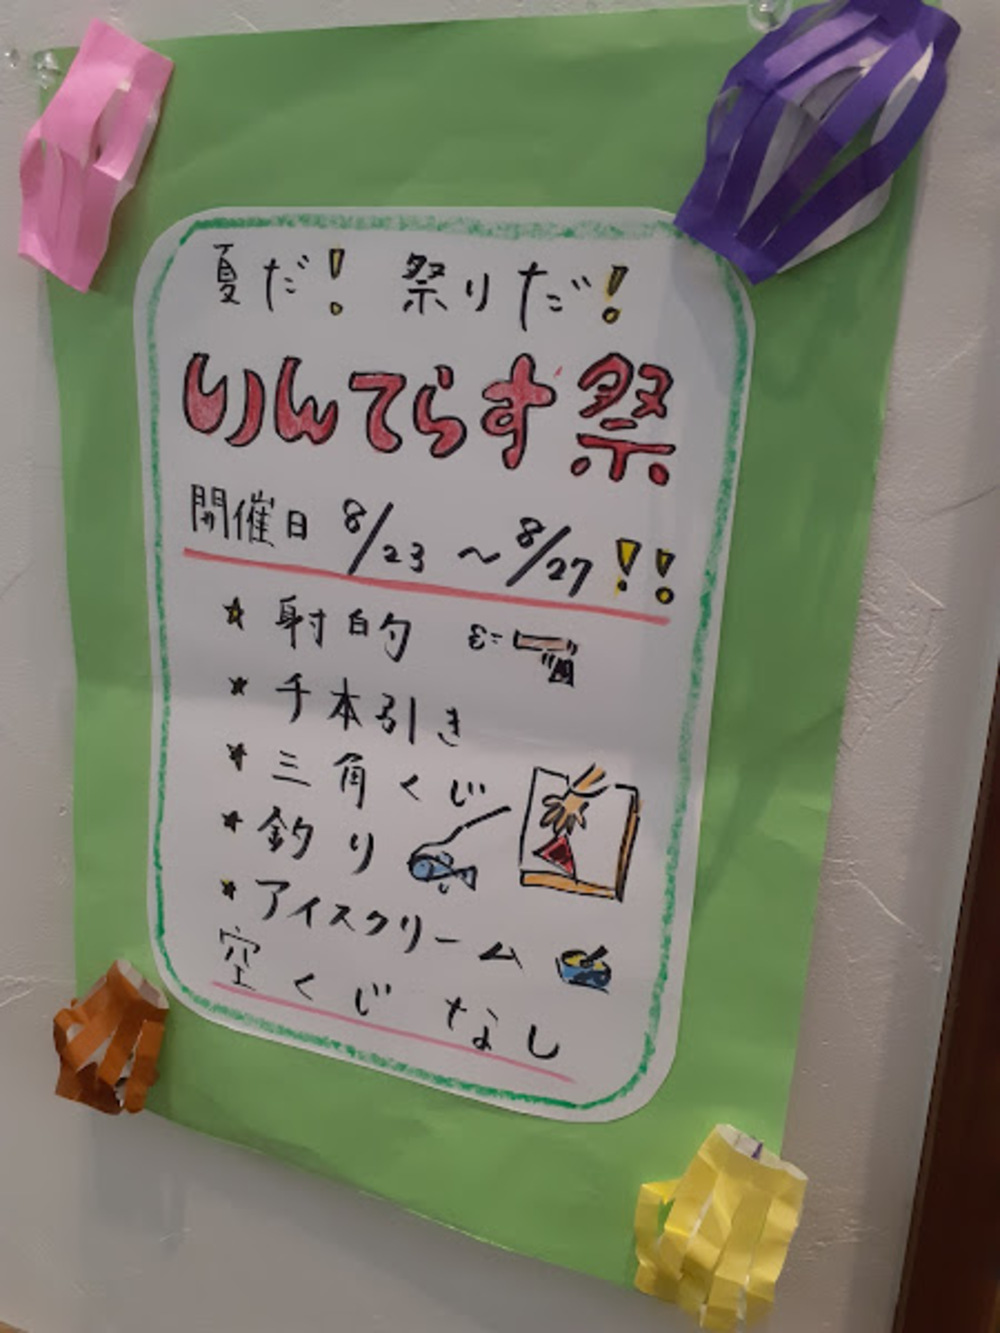 夏だ! 祭りだ!
りんてらす祭
開催日 8/23 ～ 8/27 !!
★ 射的
★ 千本引き
★ 三角くじ
★ 釣り
★ アイスクリーム
空くじなし